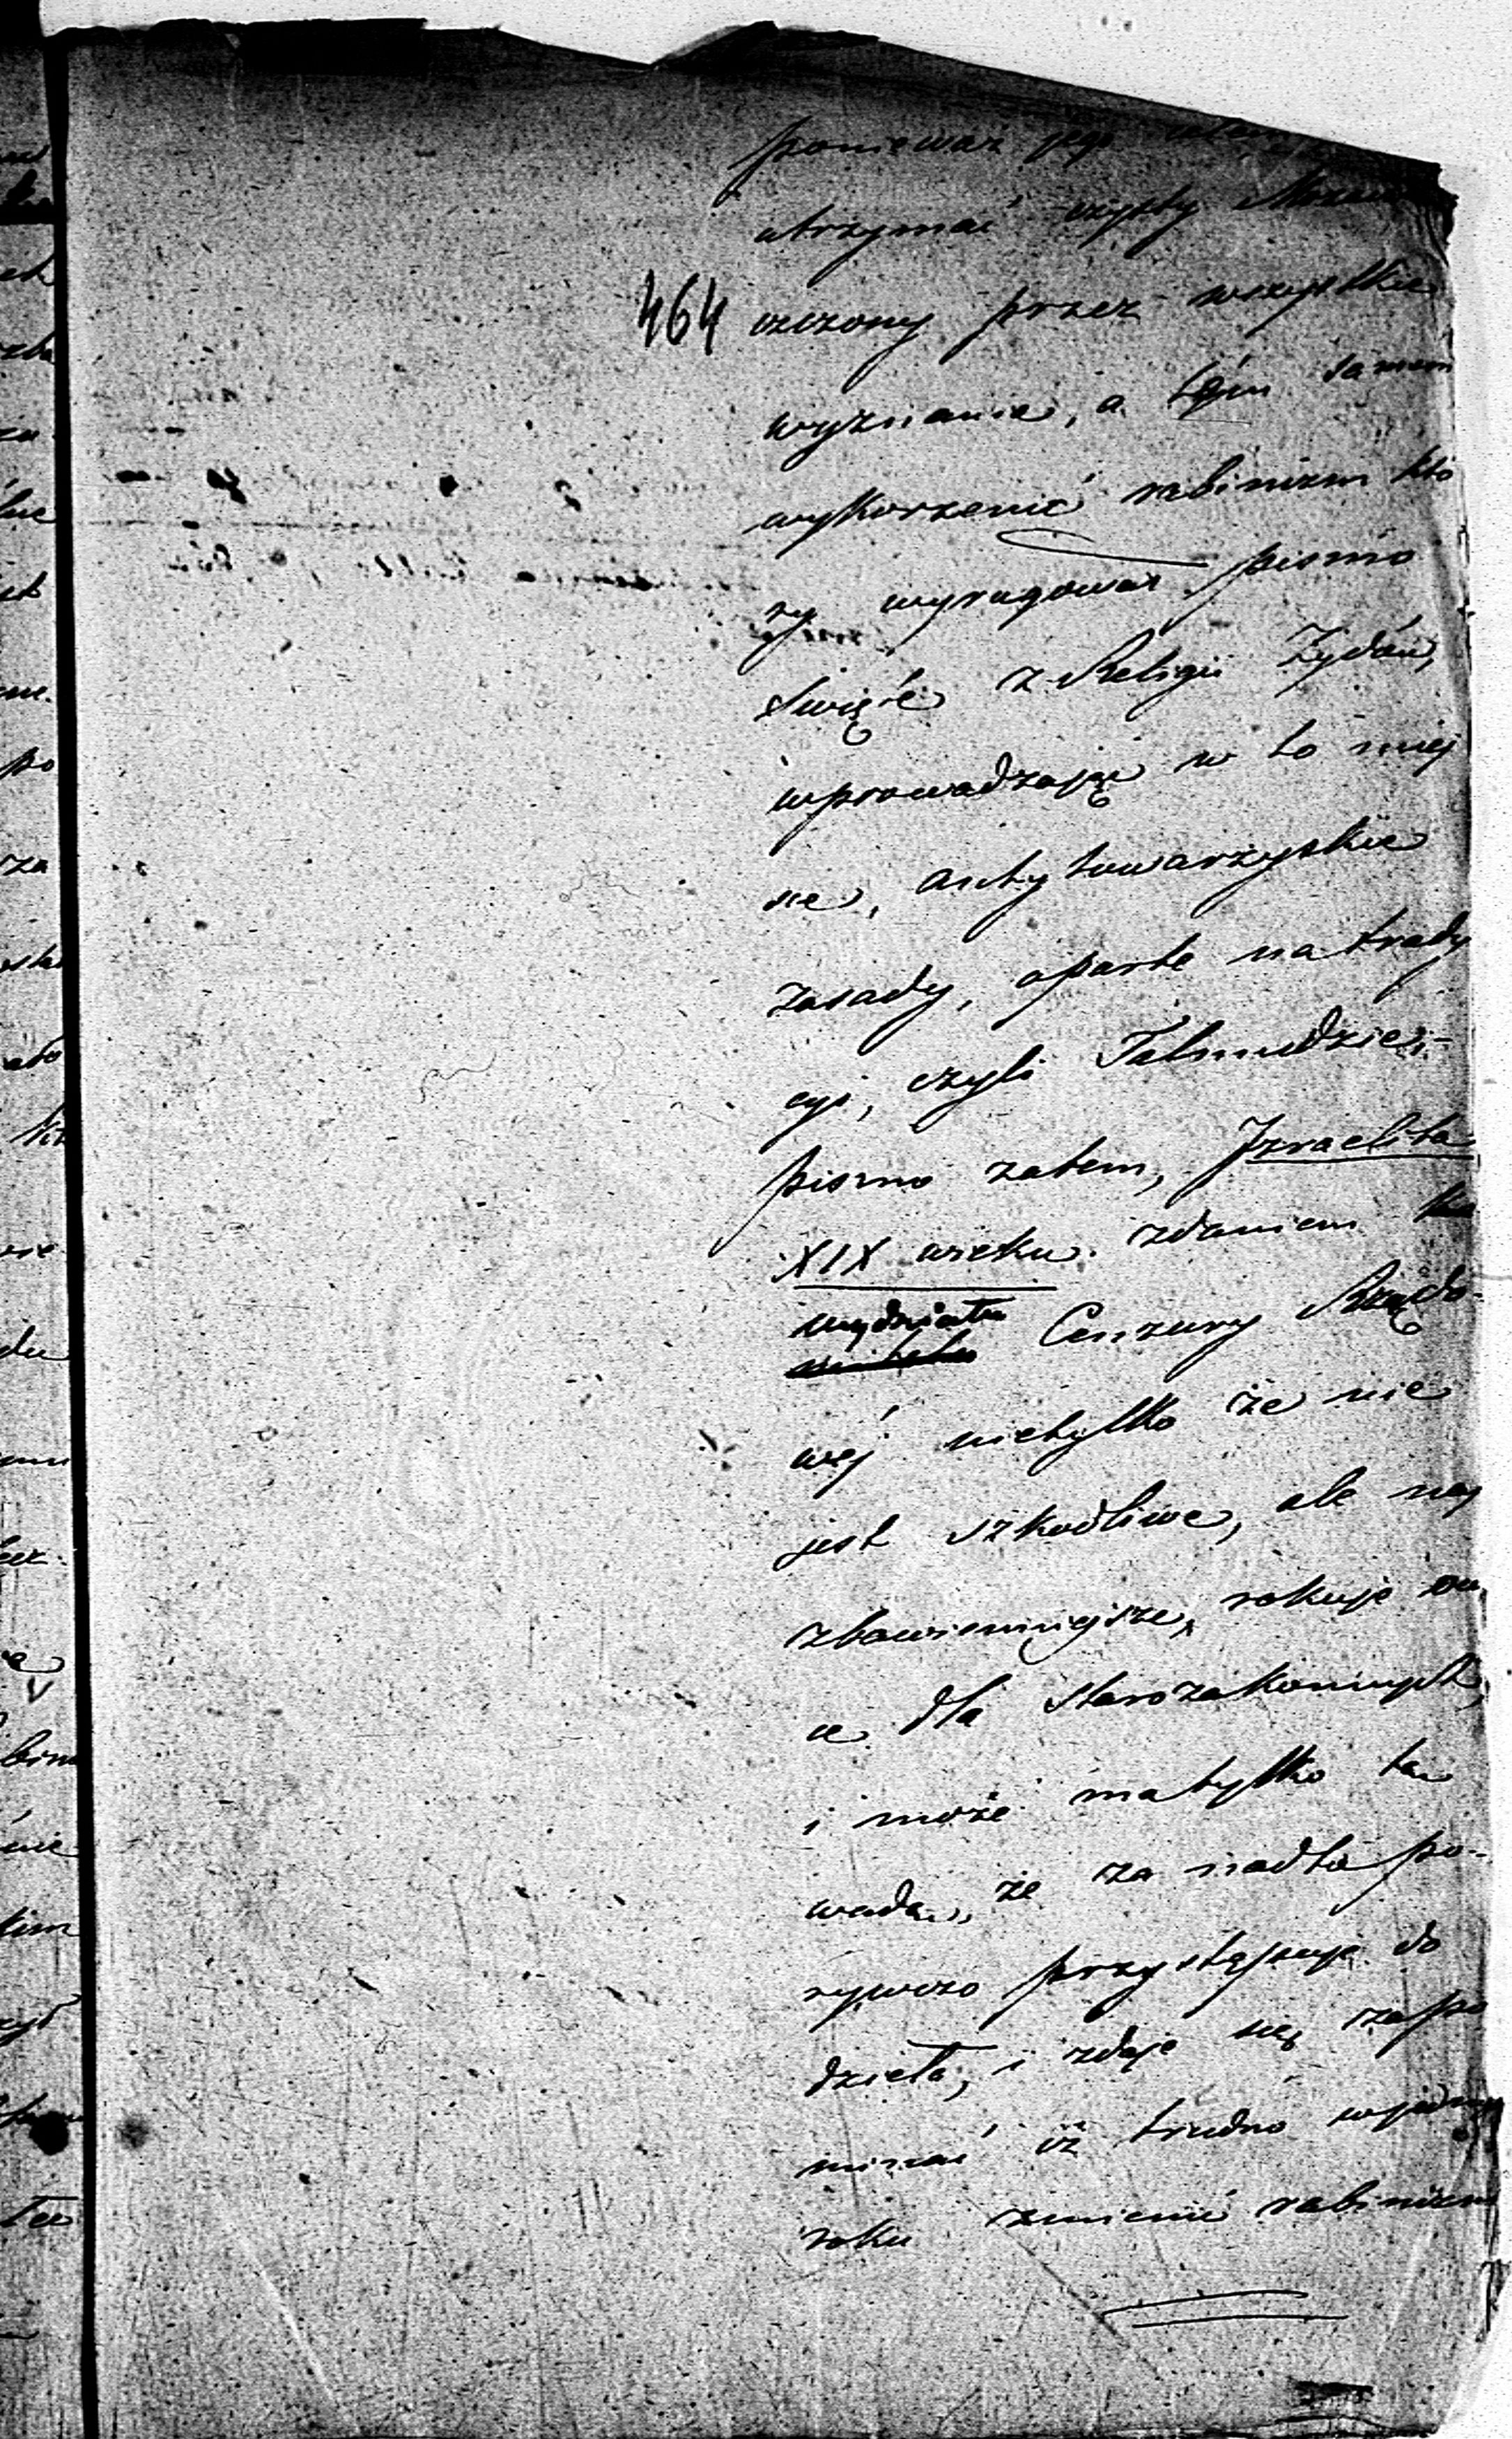 ponieważ jego
utrzymać czysty
464
czczony przez wszystkie
wyznanie, a tém samém
wykorzenić rabinizm któ
ry wyrugował pismo
święte z Religii Żydów,
wprowadzając w to miej
sce, antytowarzyskie
zasady, oparte na trady
cyi, czyli Talmudzie;-
pismo zatem, Izraelita
XIX wieku zdaniem
wydziału
Cenzury Rządo-
wéj nietylko że nie
jest szkodliwe, ale naj
zbawienniejsze, rokuje
ce dla Starozakonnych,
i może ma tylko tę
wadę, że za nadto po-
rywczo przystępuje do
dzieła, i zdaje się zapo
minać iż trudno w jednym
roku zmienić rabinizm